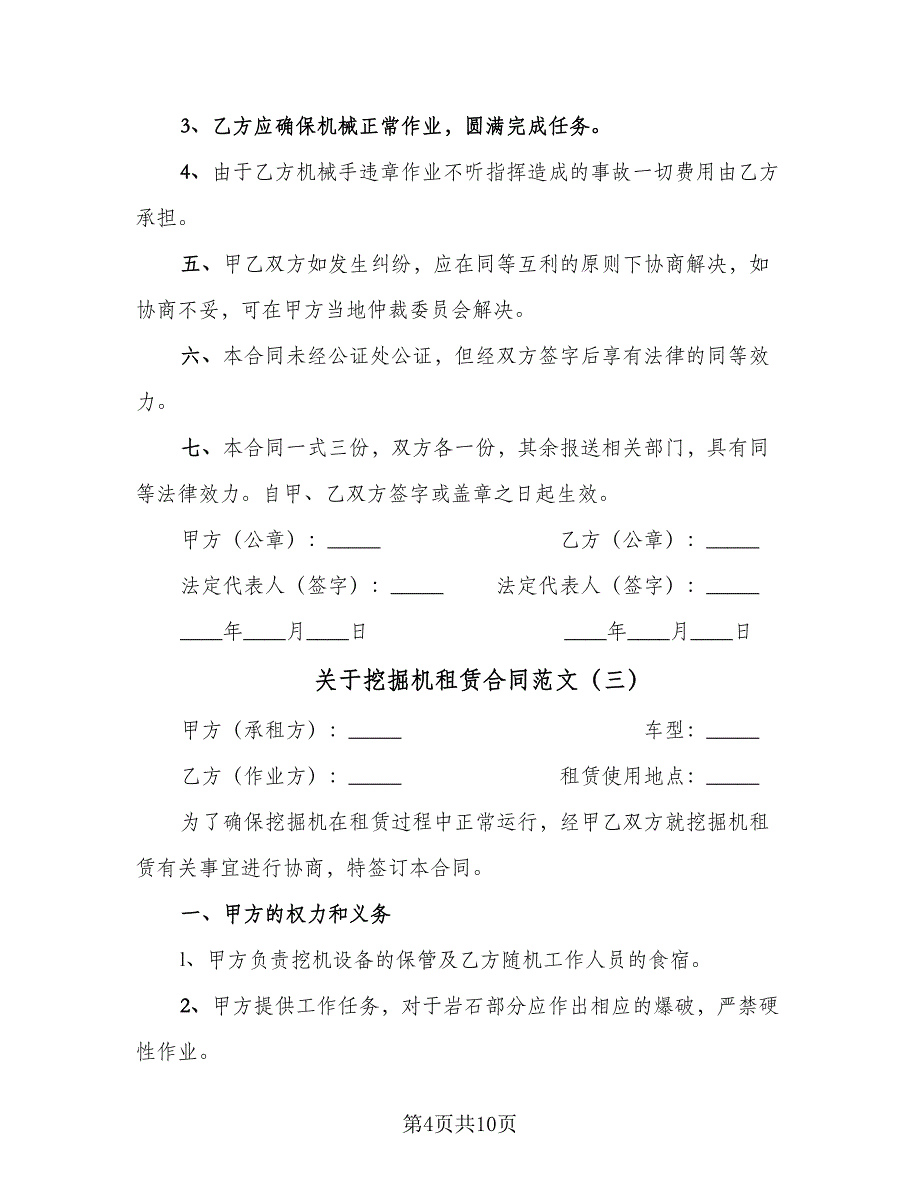 3、乙方应确保机械正常作业，圆满完成任务。
4、由于乙方机械手违章作业不听指挥造成的事故一切费用由乙方
承担。
五、甲乙双方如发生纠纷，应在同等互利的原则下协商解决，如
协商不妥，可在甲方当地仲裁委员会解决。
六、本合同未经公证处公证，但经双方签字后享有法律的同等效
力。
七、本合同一式三份，双方各一份，其余报送相关部门，具有同
等法律效力。自甲、乙双方签字或盖章之日起生效。
甲方（公章）：_____ 乙方（公章）：_____
法定代表人（签字）：_____ 法定代表人（签字）：_____
____年____月____日 ____年____月____日
关于挖掘机租赁合同范文（三）
甲方（承租方）：_____ 车型：_____
乙方（作业方）：_____ 租赁使用地点：_____
为了确保挖掘机在租赁过程中正常运行，经甲乙双方就挖掘机租
赁有关事宜进行协商，特签订本合同。
一、甲方的权力和义务
l、甲方负责挖机设备的保管及乙方随机工作人员的食宿。
2、甲方提供工作任务，对于岩石部分应作出相应的爆破，严禁硬
性作业。
第4页共10页